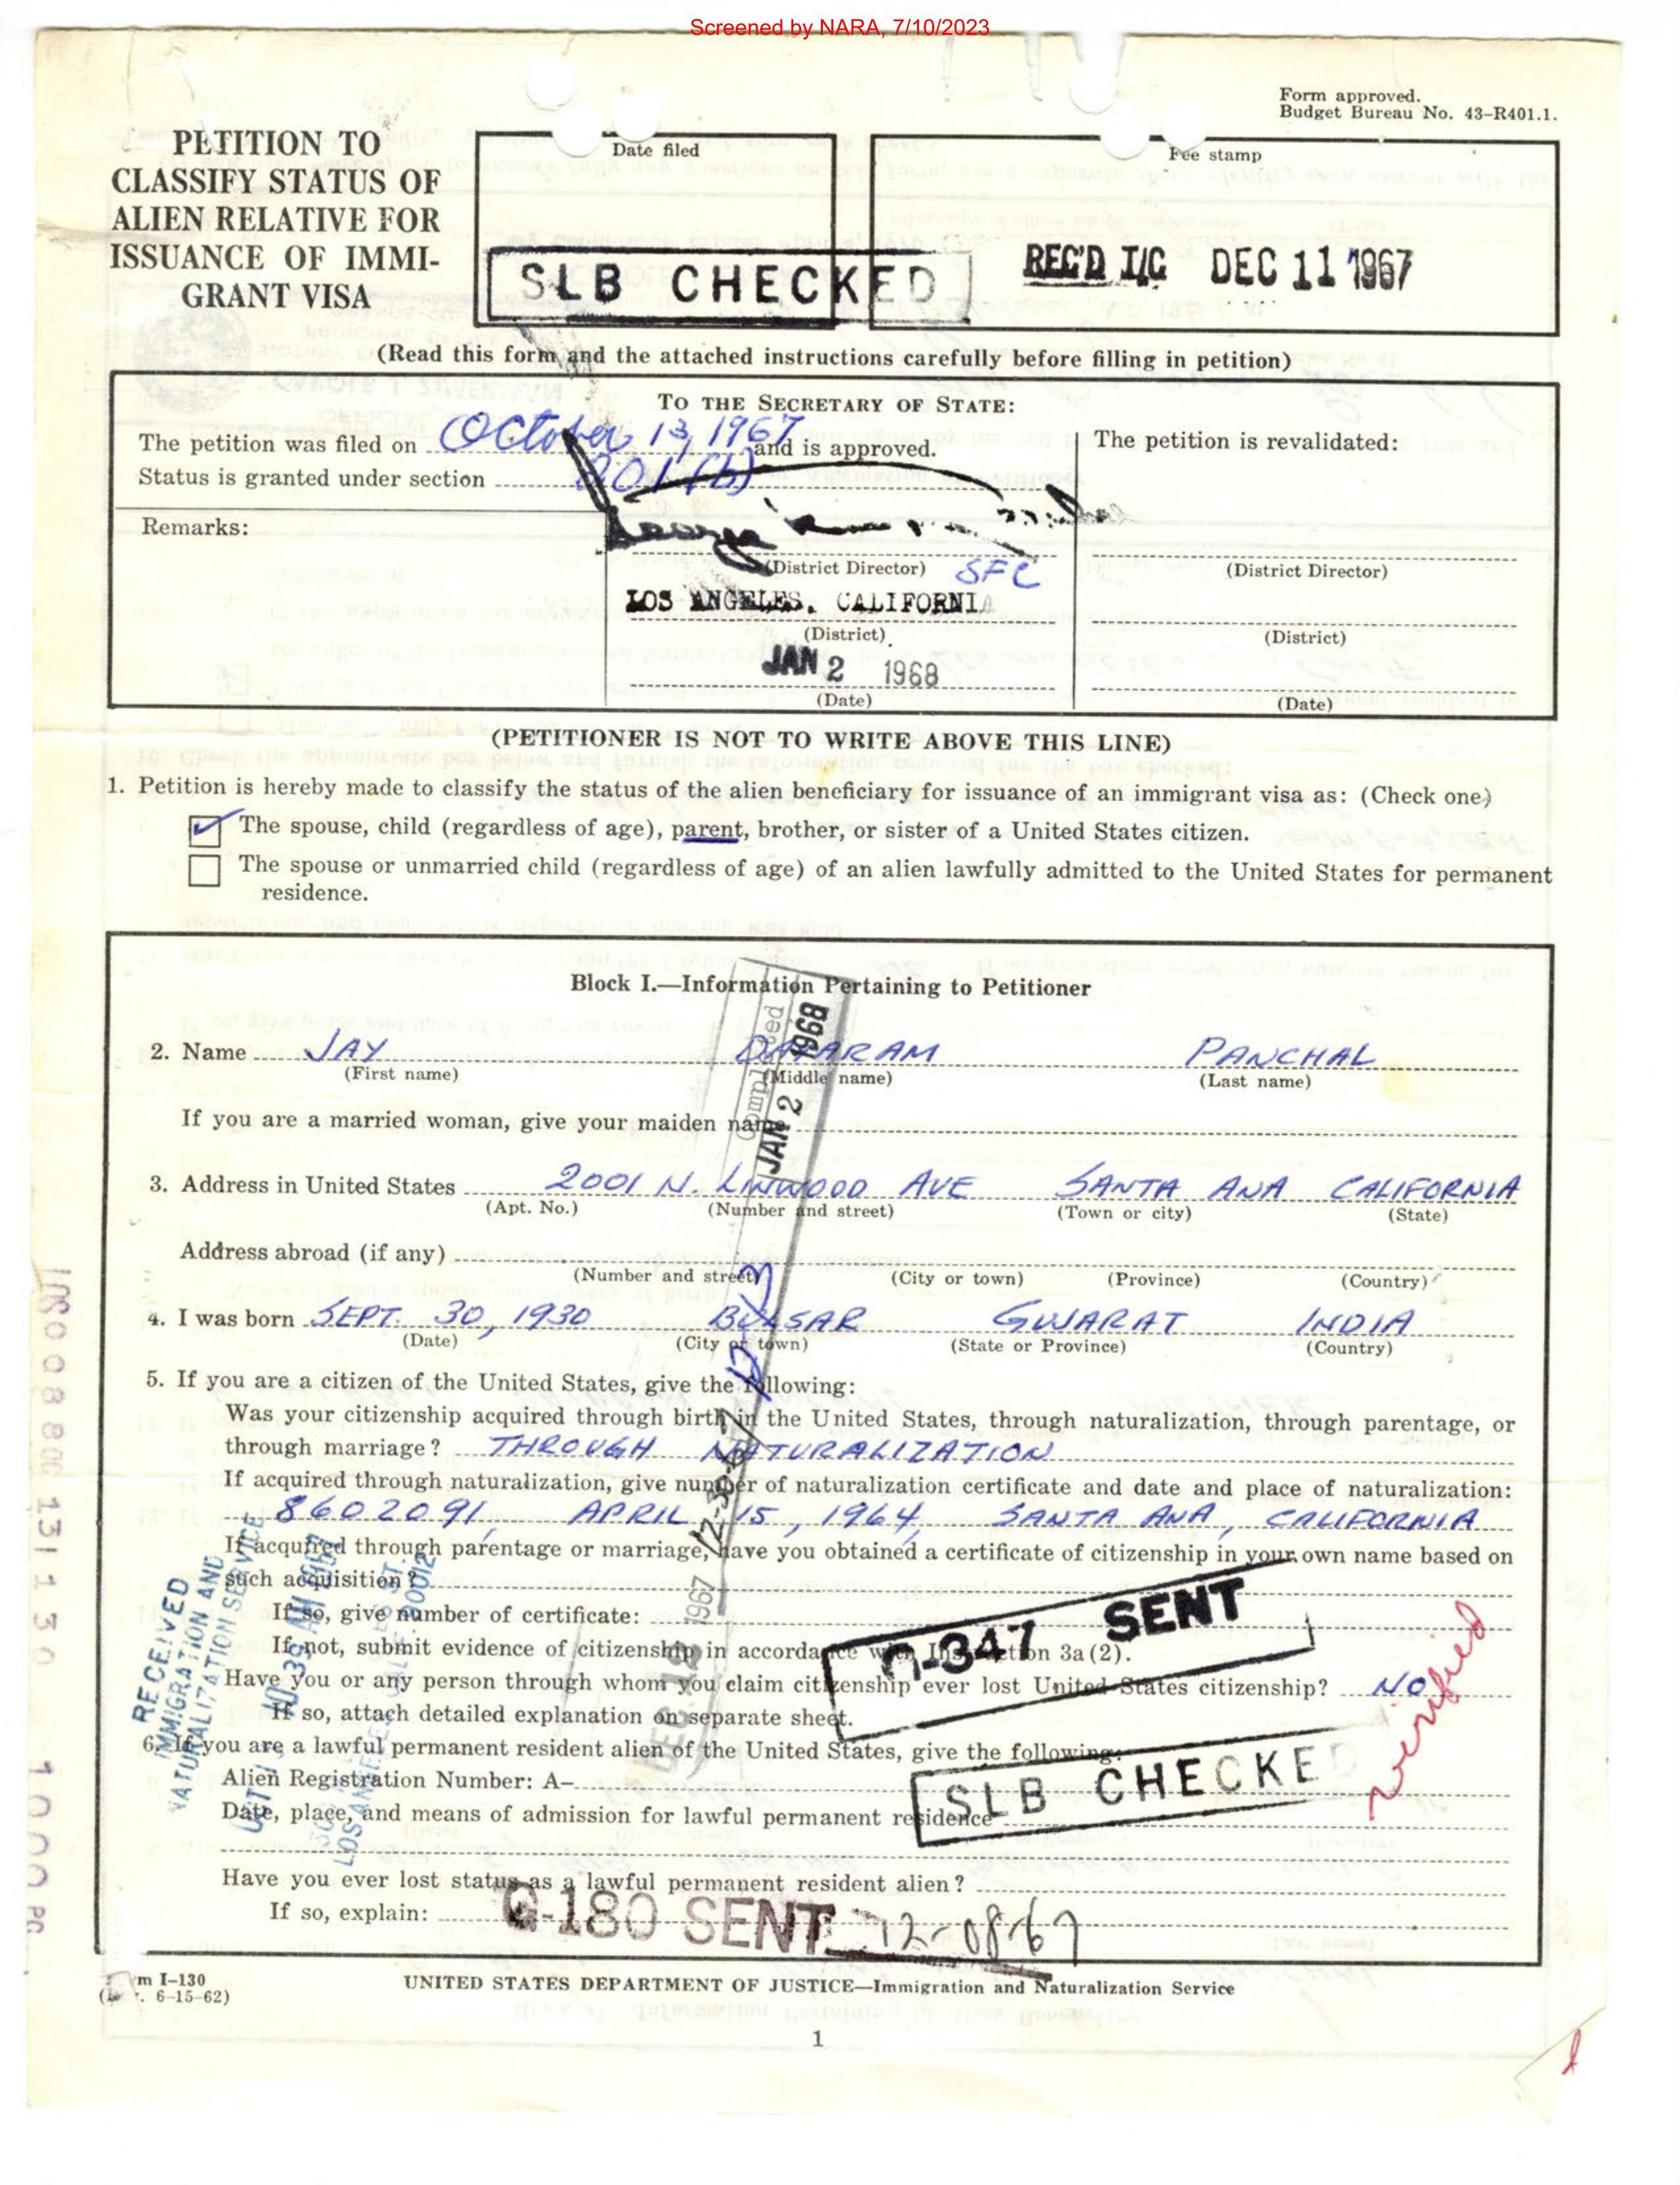 Screened by NARA, 7/10/2023
Form approved.
Budget Bureau No. 43-R401.1.
PETITION TO
CLASSIFY STATUS OF
ALIEN RELATIVE FOR
ISSUANCE OF IMMI-
GRANT VISA
Date filed
SLB CHECKED
Fee stamp
REC'D I/C DEC 11 1967
(Read this form and the attached instructions carefully before filling in petition)
TO THE SECRETARY OF STATE:
The petition was filed on October 13, 1967 and is approved.
Status is granted under section 201(b)
The petition is revalidated:
Remarks:
(District Director) SFC
(District Director)
LOS ANGELES, CALIFORNIA
(District)
(District)
JAN 2 1968
(Date)
(Date)
(PETITIONER IS NOT TO WRITE ABOVE THIS LINE)
1. Petition is hereby made to classify the status of the alien beneficiary for issuance of an immigrant visa as: (Check one)
The spouse, child (regardless of age), parent, brother, or sister of a United States citizen.
The spouse or unmarried child (regardless of age) of an alien lawfully admitted to the United States for permanent
residence.
Block I.—Information Pertaining to Petitioner
2. Name JAY PANCHAL
(First name) (Middle name) (Last name)
If you are a married woman, give your maiden name
3. Address in United States 2001 N. LINWOOD AVE SANTA ANA CALIFORNIA
(Apt. No.) (Number and street) (Town or city) (State)
Address abroad (if any)
(Number and street) (City or town) (Province) (Country)
4. I was born SEPT. 30, 1930 BULSAR GUJARAT INDIA
(Date) (City or town) (State or Province) (Country)
5. If you are a citizen of the United States, give the following:
Was your citizenship acquired through birth in the United States, through naturalization, through parentage, or
through marriage? THROUGH NATURALIZATION
If acquired through naturalization, give number of naturalization certificate and date and place of naturalization:
8602091, APRIL 15, 1964, SANTA ANA, CALIFORNIA
If acquired through parentage or marriage, have you obtained a certificate of citizenship in your own name based on
such acquisition?
If so, give number of certificate:
If not, submit evidence of citizenship in accordance with Instruction 3a(2).
Have you or any person through whom you claim citizenship ever lost United States citizenship? NO
If so, attach detailed explanation on separate sheet.
6. If you are a lawful permanent resident alien of the United States, give the following:
Alien Registration Number: A-
Date, place, and means of admission for lawful permanent residence
Have you ever lost status as a lawful permanent resident alien?
If so, explain:
Completed
JAN 2 1968
DEC 12 1967
RECEIVED
IMMIGRATION AND
NATURALIZATION SERVICE
LOS ANGELES
90012
-347 SENT
SLB CHECKED
verified
G-180 SENT 12-08-67
m I-130
6-15-62)
UNITED STATES DEPARTMENT OF JUSTICE—Immigration and Naturalization Service
1